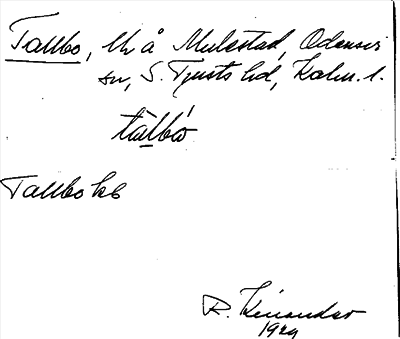 Tallbo, lh å Mulestad, Odensvi
sn, S. Tjusts hd, Kalm. l.
tàlbó
Tallbo ek
R. Kinander
1929